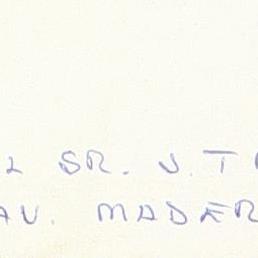 L SR. J. T
AV. MADER